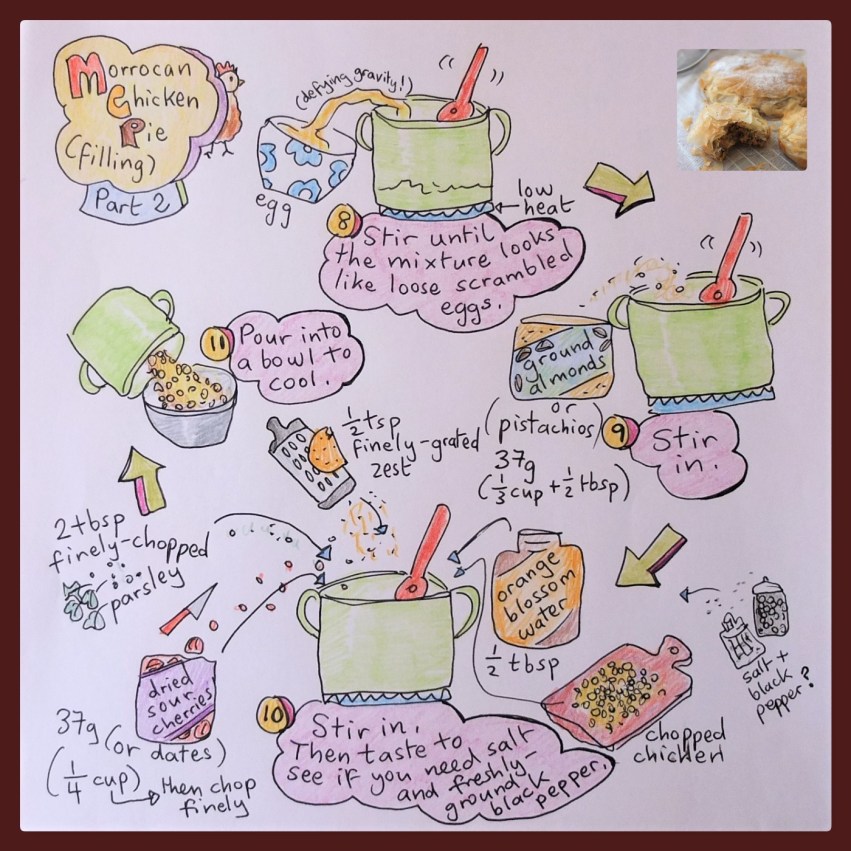 Morrocan
Chicken
Pie
(filling)
Part 2
(defying gravity!)
egg
low
heat
8
Stir until
the mixture looks
like loose scrambled
eggs.
ground
almonds
or
(pistachios)
37g
(1/3 cup + 1/2 tbsp)
9
Stir
in.
1/2 tsp
finely-grated
zest
2 tbsp
finely-chopped
parsley
dried
sour
cherries
37g (or dates)
(1/4 cup)
then chop
finely
orange
blossom
water
1/2 tbsp
chopped
chicken
salt +
black
pepper?
10
Stir in.
Then taste to
see if you need salt
and freshly-
ground
black
pepper.
11
Pour into
a bowl to
cool.